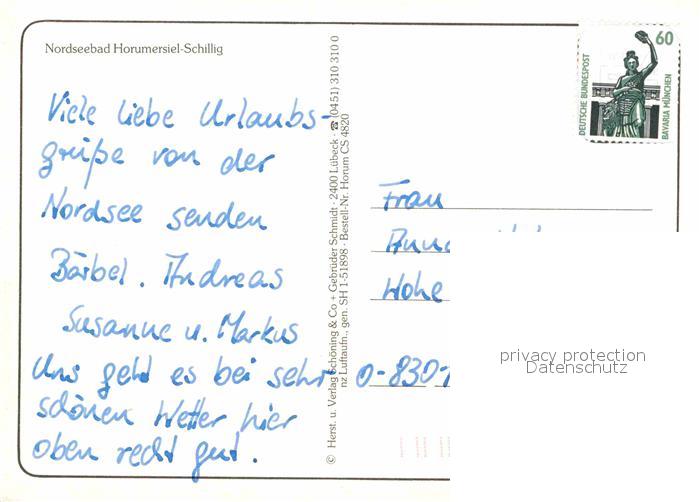 Nordseebad Horumersiel-Schillig
Viele liebe Urlaubs-
grüße von der
Nordsee senden
Bärbel. Andreas
Susanne u. Markus
Uns geht es bei sehr
schönen Wetter hier
oben recht gut.
© Herst. u. Verlag Schöning & Co + Gebrüder Schmidt · 2400 Lübeck · ☎ (0451) 310 310 0
nz Luftaufn., gen. SH 1-51898 · Bestell-Nr. Horum CS 4820
60
DEUTSCHE BUNDESPOST
BAVARIA MÜNCHEN
Frau
Hohe
O-8301
privacy protection
Datenschutz